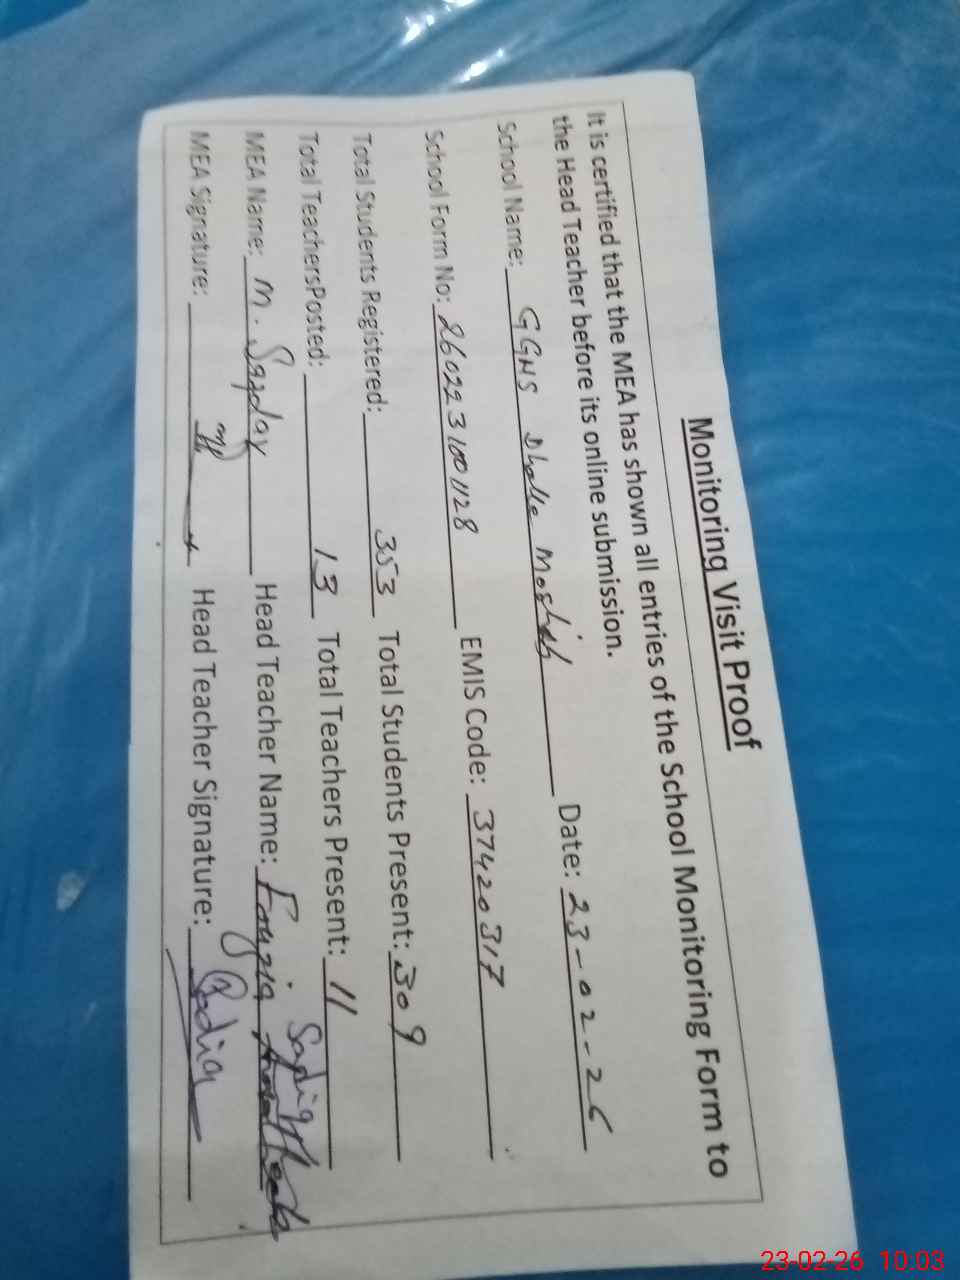 Monitoring Visit Proof
It is certified that the MEA has shown all entries of the School Monitoring Form to
the Head Teacher before its online submission.
School Name: GGHS Dhalle Date: 23-02-26
School Form No: 2602231001128 EMIS Code: 37420317
Total Students Registered: 353 Total Students Present: 309
Total TeachersPosted: 13 Total Teachers Present: 11
MEA Name: M. Head Teacher Name: Fouzia Sadiq
MEA Signature: Head Teacher Signature: Sadiq
23-02-26 10:03